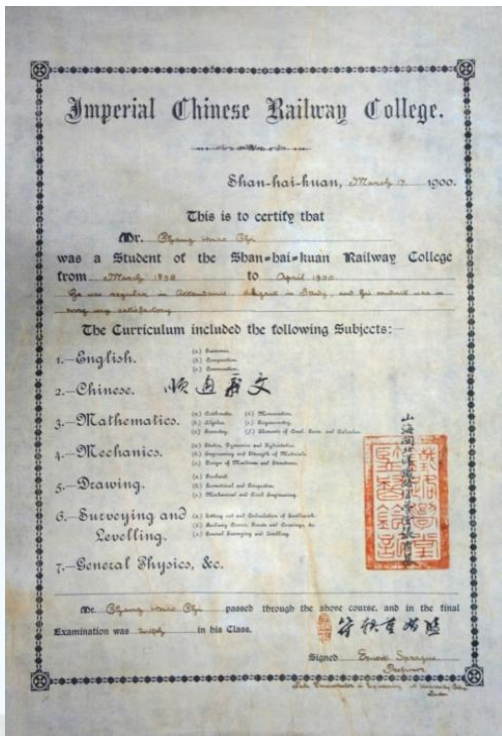 Imperial Chinese Railway College.
Shan-hai-kuan, March 17 1900.
This is to certify that
Mr.
was a Student of the Shan-hai-kuan Railway College
from March 1898 to April 1900
He was regular in Attendance diligent in Study, and his conduct was in
every way satisfactory
The Curriculum included the following Subjects:—
1.—English.
(a) Grammar.
(b) Composition.
(c) Conversation.
2.—Chinese.
3.—Mathematics.
(a) Arithmetic. (d) Mensuration.
(b) Algebra. (e) Trigonometry.
(c) Geometry.
4.—Mechanics.
(a) Statics, Dynamics and Hydrostatics.
(b) Engineering and Strength of Materials.
(c) Design of Machines and Structures.
5.—Drawing.
(a) Freehand.
(b) Geometrical and Projection.
(c) Mechanical and Civil Engineering.
6.—Surveying and
Levelling.
(a) Setting out and Calculation of Earthwork.
(b) Railway Curves, Points and Crossings, &c.
(c) General Surveying and Levelling.
7.—General Physics, &c.
Mr. passed through the above course, and in the final
Examination was in his Class.
Signed Ernest Sprague
Professor